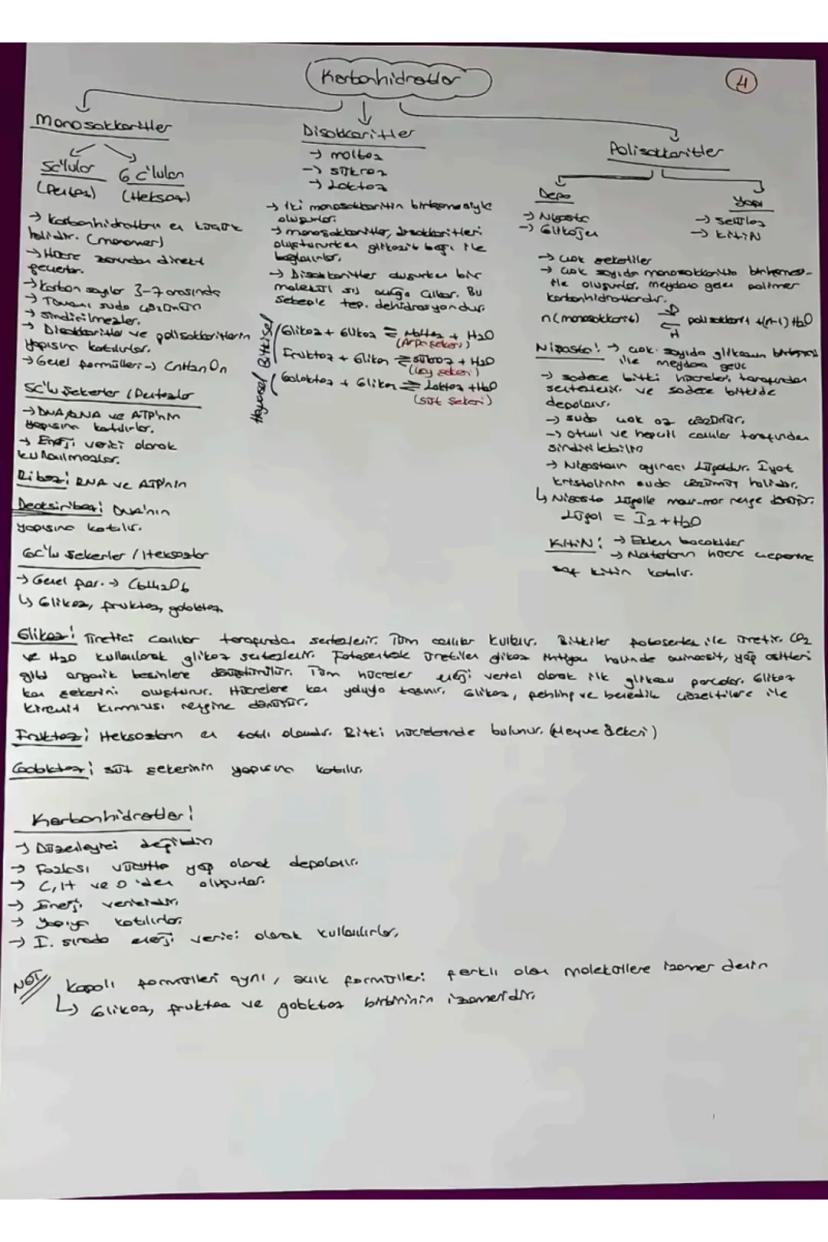 Karbonhidratlar
4
Monosakkaritler
5C'lular 6C'lular
(Pentoz) (Heksoz)
→ Karbonhidratların en küçük
halidir. (monomer)
→ Hücre zarından direkt
geçerler.
→ Karbon sayıları 3-7 arasında
→ Tamamı suda çözünür
→ Sindirilmezler.
→ Disakkaritler ve polisakkaritlerin
yapısına katılırlar.
→ Genel formülleri → CnH2nOn
5C'lu Şekerler / Pentozlar
→ DNA, RNA ve ATP'nin
yapısına katılırlar.
→ Enerji verici olarak
kullanılmazlar.
Riboz: RNA ve ATP'nin
Deoksiriboz: DNA'nın
yapısına katılır.
6C'lu Şekerler / Heksozlar
→ Genel for. → C6H12O6
↳ Glikoz, fruktoz, galaktoz
Disakkaritler
→ maltoz
→ sükroz
→ Laktoz
→ İki monosakkaritin birleşmesiyle
oluşurlar.
→ monosakkaritler, disakkaritleri
oluştururken glikozit bağı ile
bağlanırlar.
→ Disakkaritler oluşurken bir
molekül su açığa çıkar. Bu
sebeple tep. dehidrasyondur.
Bitkisel
Glikoz + Glikoz ⇌ Maltoz + H2O
(Arpa şekeri)
Fruktoz + Glikoz ⇌ sükroz + H2O
(Çay şekeri)
Hayvansal
Galaktoz + Glikoz ⇌ Laktoz + H2O
(Süt şekeri)
Polisakkaritler
Depo Yapı
→ Nişasta → Selüloz
→ Glikojen → KİTİN
→ Çok şekerliler
→ Çok sayıda monosakkaritin birleşmesi-
ile oluşurlar. meydana gelen polimer
karbonhidratlardır.
n(monosakkarit) D ⇌ H polisakkarit + (n-1) H2O
Nişasta: → Çok sayıda glikozun birleşmesi
ile meydana gelir
→ sadece bitki hücreleri tarafından
sentezlenir. ve sadece bitkide
depolanır.
→ suda çok az çözünür.
→ otçul ve hepçil canlılar tarafından
sindirilebilir
→ Nişastanın ayıracı Lügoldur. İyot
kristalinin suda çözünmüş halidir.
↳ Nişasta Lügolle mavi-mor renge dönüşür.
Lügol = I2 + H2O
KİTİN: → Eklem bacaklılar
→ Mantarların hücre çeperine
saf kitin katılır.
Glikoz: Üretici canlılar tarafından sentezlenir. Tüm canlılar kullanır. Bitkiler fotosentez ile üretir. CO2
ve H2O kullanılarak glikoz sentezlenir. Fotosentezle üretilen glikoz ihtiyaç halinde aminoasit, yağ asitleri
gibi organik besinlere dönüştürülür. Tüm hücreler enerji verici olarak ilk glikozu parçalar. Glikoz
kan şekerini oluşturur. Hücrelere kan yoluyla taşınır. Glikoz, fehling ve benedik çözeltileri ile
kiremit kırmızısı rengine dönüşür.
Fruktoz: Heksozların en tatlı olanıdır. Bitki hücrelerinde bulunur. (Meyve Şekeri)
Galaktoz: süt şekerinin yapısına katılır.
Karbonhidratlar:
→ Düzenleyici değildir
→ Fazlası vücutta yağ olarak depolanır.
→ C, H ve O 'den oluşurlar.
→ Enerji verirler.
→ Yapıya katılırlar.
→ I. sırada enerji verici olarak kullanılırlar.
NOT Kapalı formülleri aynı, açık formülleri farklı olan moleküllere izomer denir
↳ Glikoz, fruktoz ve galaktoz birbirinin izomeridir.